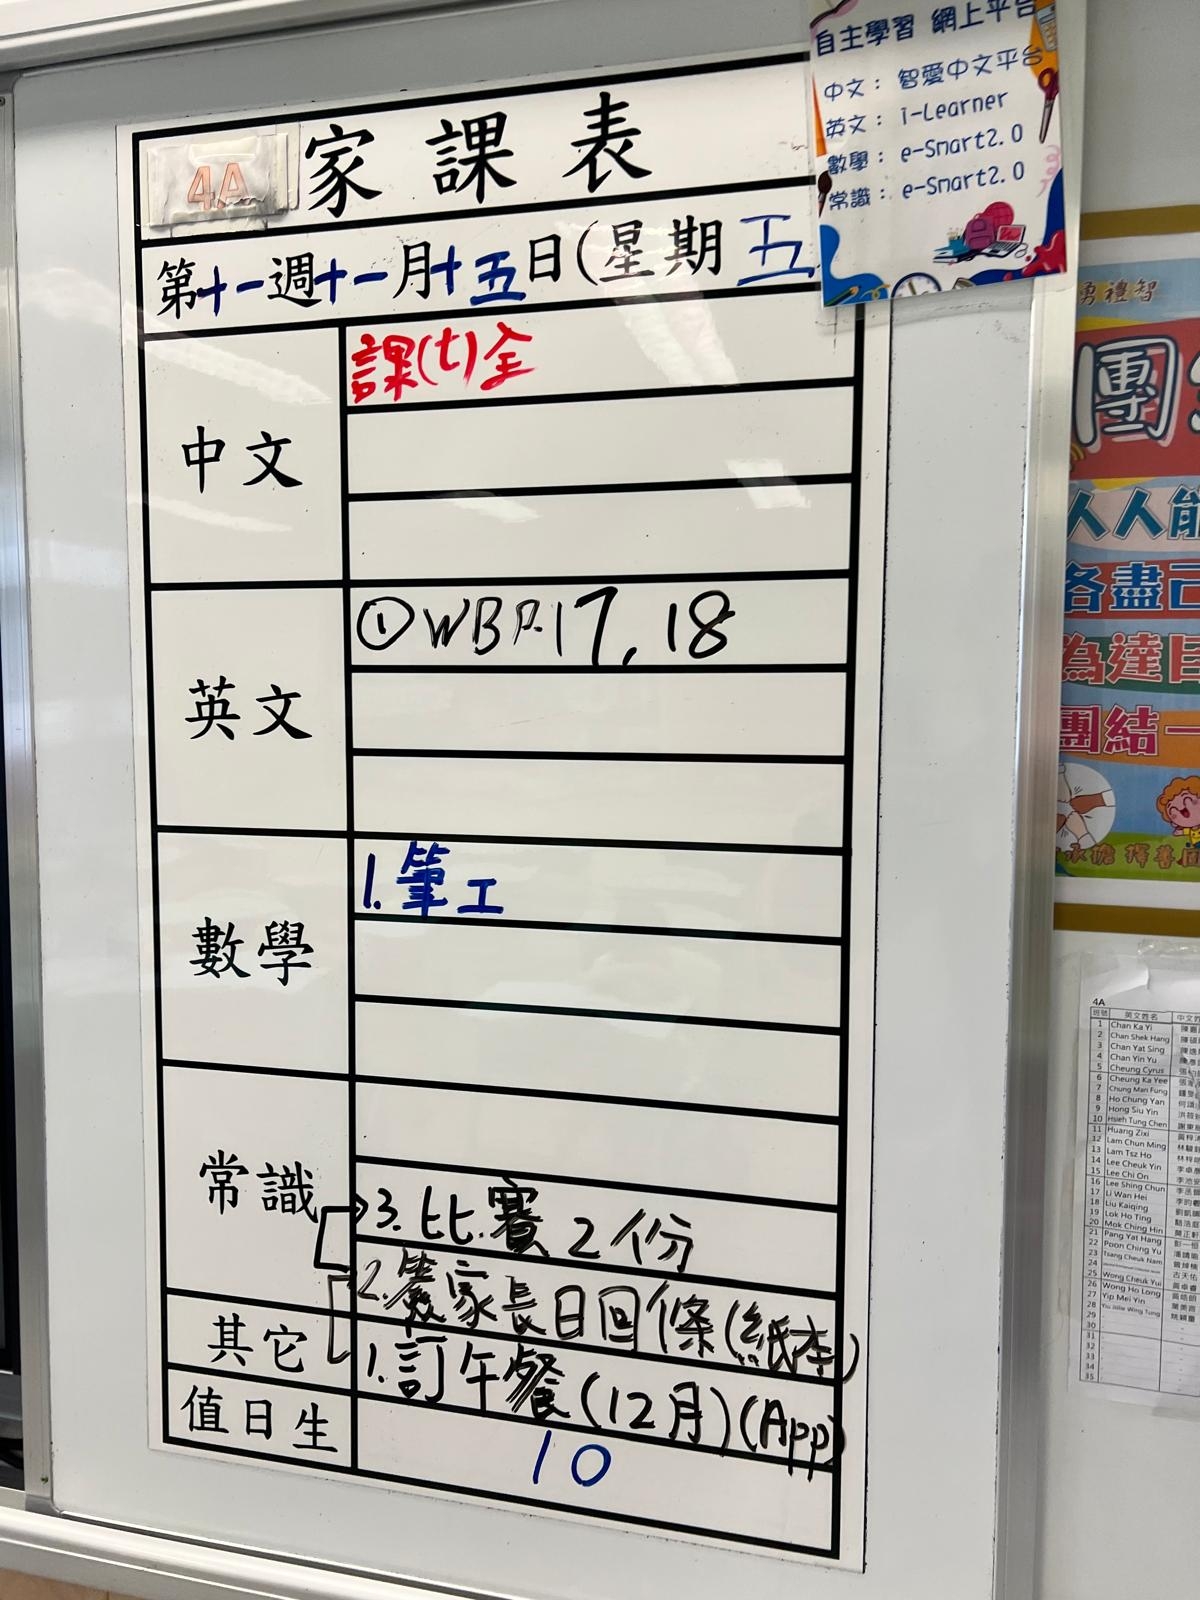 自主學習 網上平台
中文： 智愛中文平台
英文： i-Learner
數學： e-Smart2.0
常識： e-Smart2.0
4A 家課表
第十一週十一月十五日(星期五
中文
課(七)全
英文
①WB P.17, 18
數學
1. 筆工
常識
3. 比賽2份
2. 家長日回條(紙本)
其它
1. 訂午餐(12月)(App)
值日生
10
勇禮智
團
人人能
各盡己
為達目
團結一
4A
班號 英文姓名 中文姓
1 Chan Ka Yi
2 Chan Shek Hang
3 Chan Yat Sing
4 Chan Yin Yu
5 Cheung Cyrus
6 Cheung Ka Yee
7 Chung Man Fung
8 Ho Chung Yan
9 Hong Siu Yin
10 Hsieh Tung Chen
11 Huang Zixi
12 Lam Chun Ming
13 Lam Tsz Ho
14 Lee Cheuk Yin
15 Lee Chi On
16 Lee Shing Chun
17 Li Wan Hei
18 Liu Kaiqing
19 Lok Ho Ting
20 Mok Ching Hin
21 Pang Yat Hang
22 Poon Ching Yu
23 Tsang Cheuk Nam
24
25 Wong Cheuk Yui
26 Wong Ho Long
27 Yip Mei Yin
28
29
30
31
32
33
34
35